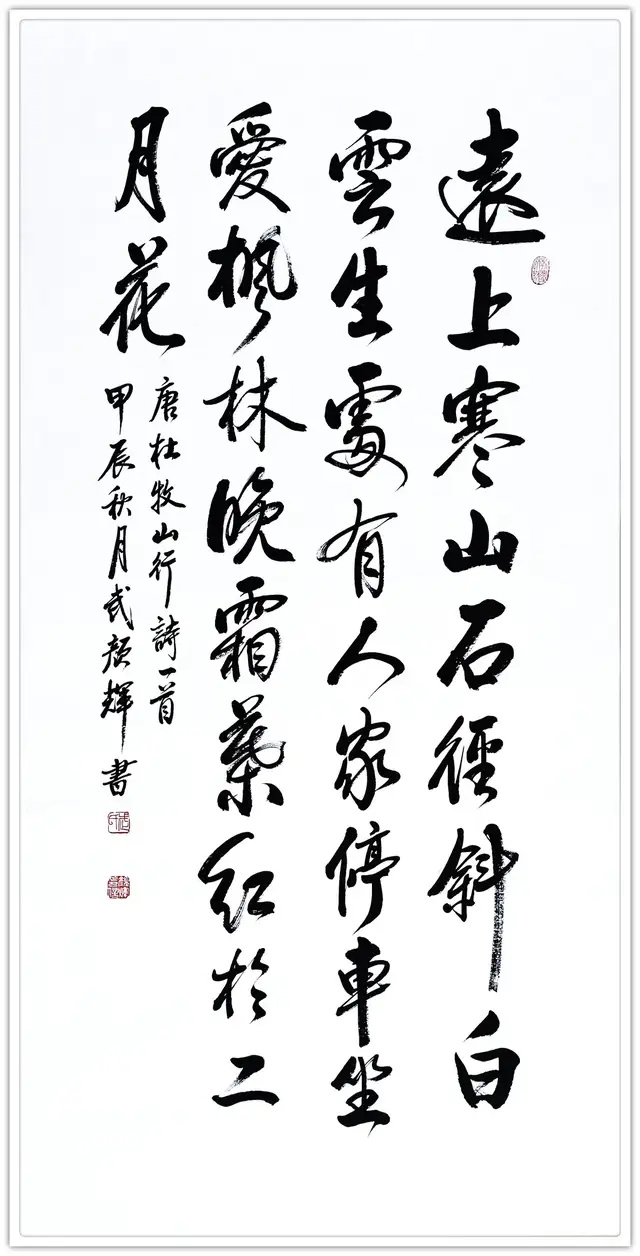 遠上寒山石徑斜白
雲生處有人家停車坐
愛楓林晚霜葉紅於二
月花
唐杜牧山行詩一首
甲辰秋月武顏輝書